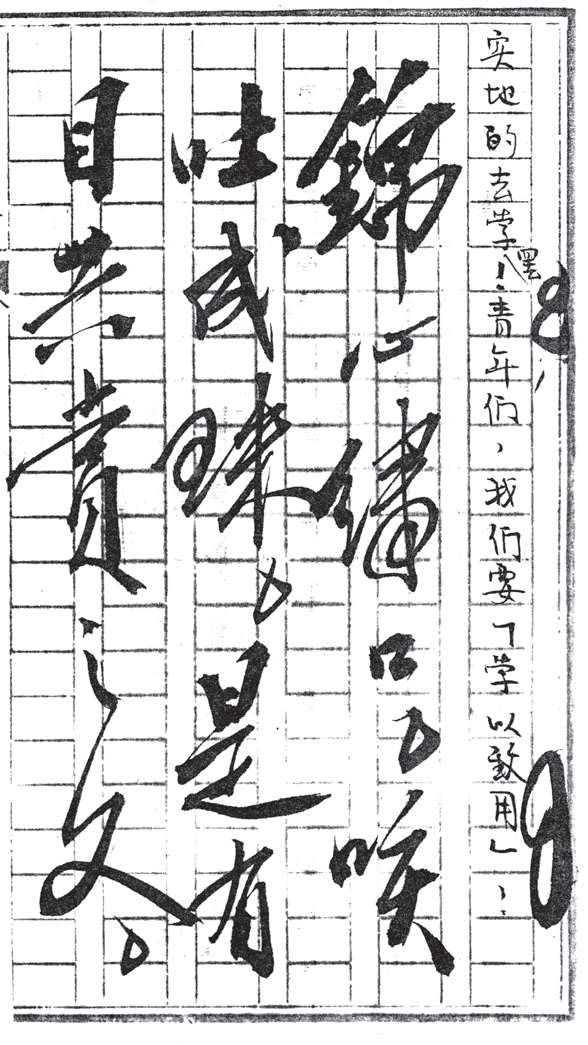 实地的去学罢！青年们，我们要「学以致用」！
锦心绣口，咳
吐成珠，是有
目共赏之文。